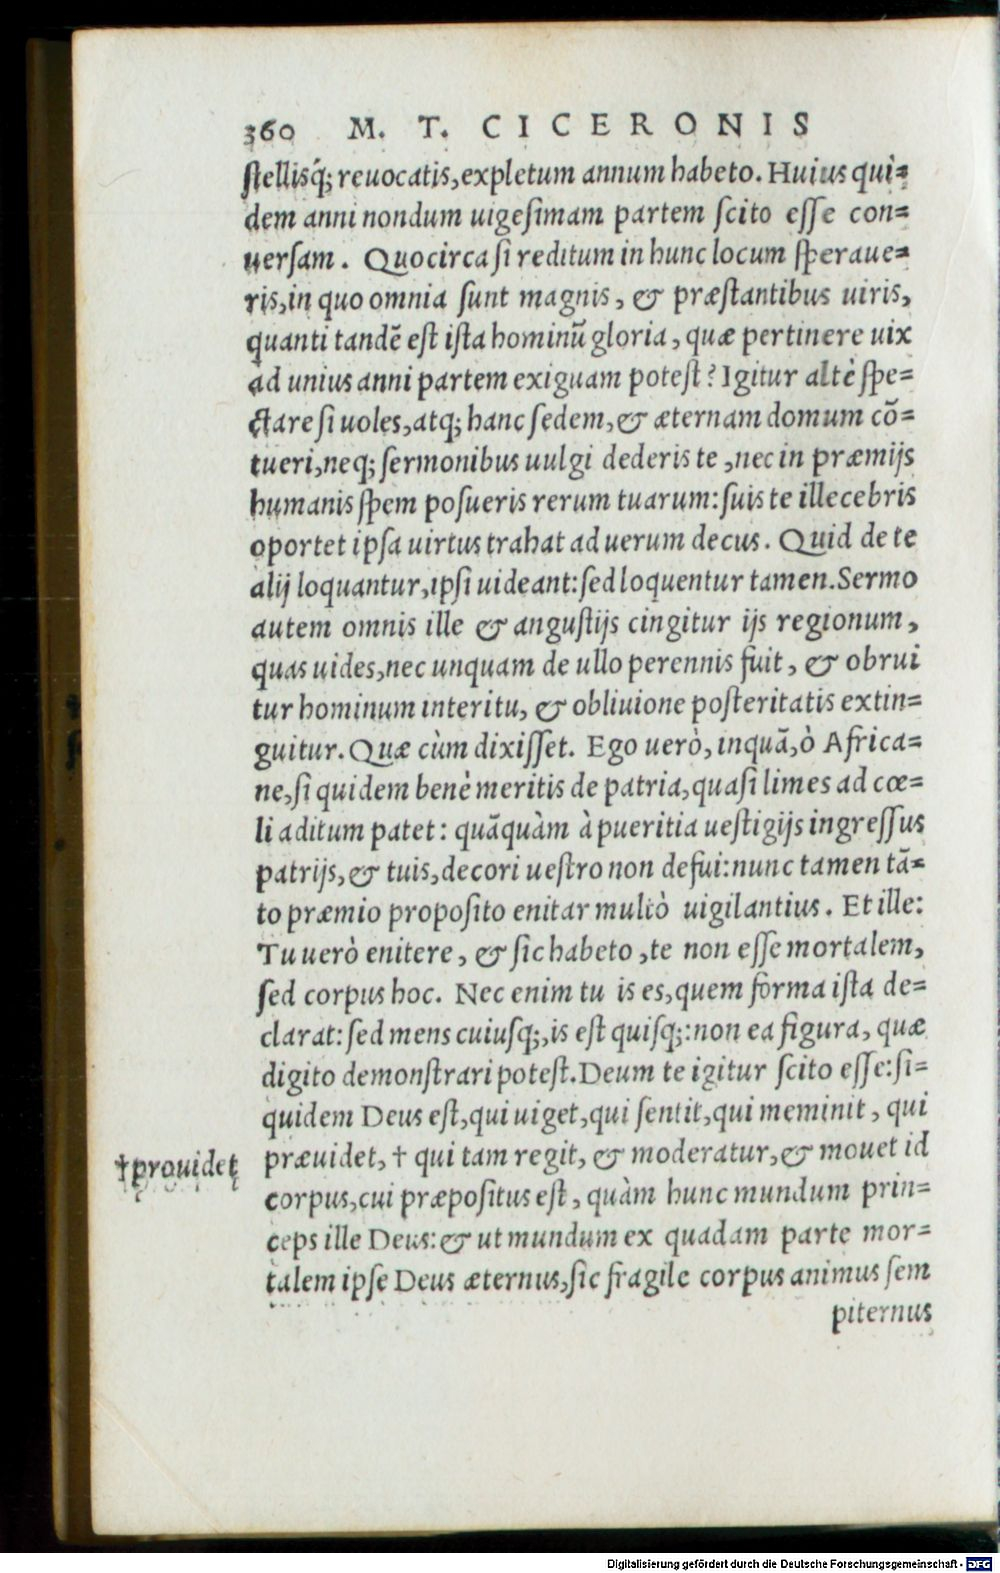 360 M. T. CICERONIS
ſtellisq́; reuocatis,expletum annum habeto. Huius qui=
dem anni nondum uigeſimam partem ſcito eſſe con=
uerſam. Quocirca ſi reditum in hunc locum ſperaue=
ris,in quo omnia ſunt magnis, & præſtantibus uiris,
quanti tandē eſt iſta hominū gloria, quæ pertinere uix
ad unius anni partem exiguam poteſt? Igitur altè ſpe=
ctare ſi uoles,atq; hanc ſedem,& æternam domum cō=
tueri,neq; ſermonibus uulgi dederis te ,nec in præmijs
humanis ſpem poſueris rerum tuarum: ſuis te illecebris
oportet ipſa uirtus trahat ad uerum decus. Quid de te
alij loquantur,ipſi uideant: ſed loquentur tamen.Sermo
autem omnis ille & anguſtijs cingitur ijs regionum,
quas uides,nec unquam de ullo perennis fuit, & obrui
tur hominum interitu, & obliuione poſteritatis extin=
guitur. Quæ cùm dixiſſet. Ego uerò, inquā,ò Africa=
ne,ſi quidem benè meritis de patria,quaſi limes ad cœ=
li aditum patet: quāquàm à pueritia ueſtigijs ingreſſus
patrijs,& tuis,decori ueſtro non defui:nunc tamen tā=
to præmio propoſito enitar multò uigilantius. Et ille:
Tu uerò enitere, & ſic habeto ,te non eſſe mortalem,
ſed corpus hoc. Nec enim tu is es,quem forma iſta de=
clarat: ſed mens cuiuſq;,is eſt quiſq;:non ea figura, quæ
digito demonſtrari poteſt.Deum te igitur ſcito eſſe:ſi=
quidem Deus eſt,qui uiget,qui ſentit,qui meminit, qui
præuidet, † qui tam regit, & moderatur,& mouet id
†prouidet
corpus,cui præpoſitus eſt, quàm hunc mundum prin=
ceps ille Deus: & ut mundum ex quadam parte mor=
talem ipſe Deus æternus,ſic fragile corpus animus ſem
piternus
Digitalisierung gefördert durch die Deutsche Forschungsgemeinschaft - DFG